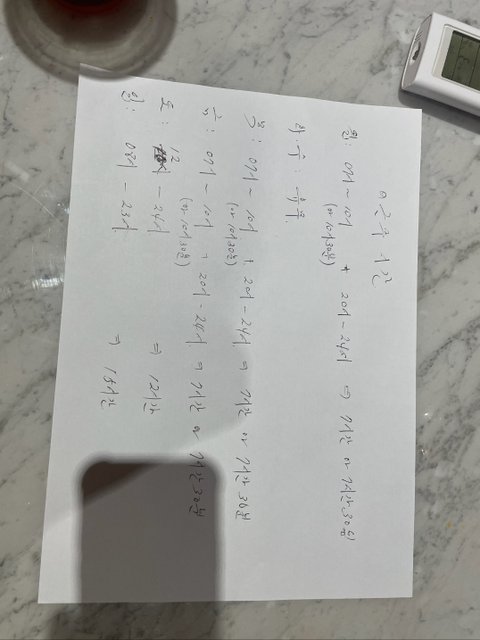 ㅁ 근무 시간
월: 07시 ~ 10시 + 20시 - 24시 ⇒ 7시간 or 7시간 30분
(or 10시 30분)
화·수: 휴무
목: 07시 ~ 10시 + 20시 - 24시 ⇒ 7시간 or 7시간 30분
(or 10시 30분)
금: 07시 ~ 10시 + 20시 - 24시 ⇒ 7시간 or 7시간 30분
(or 10시 30분)
토: 12시 - 24시 ⇒ 12시간
일: 08시 - 23시 ⇒ 15시간